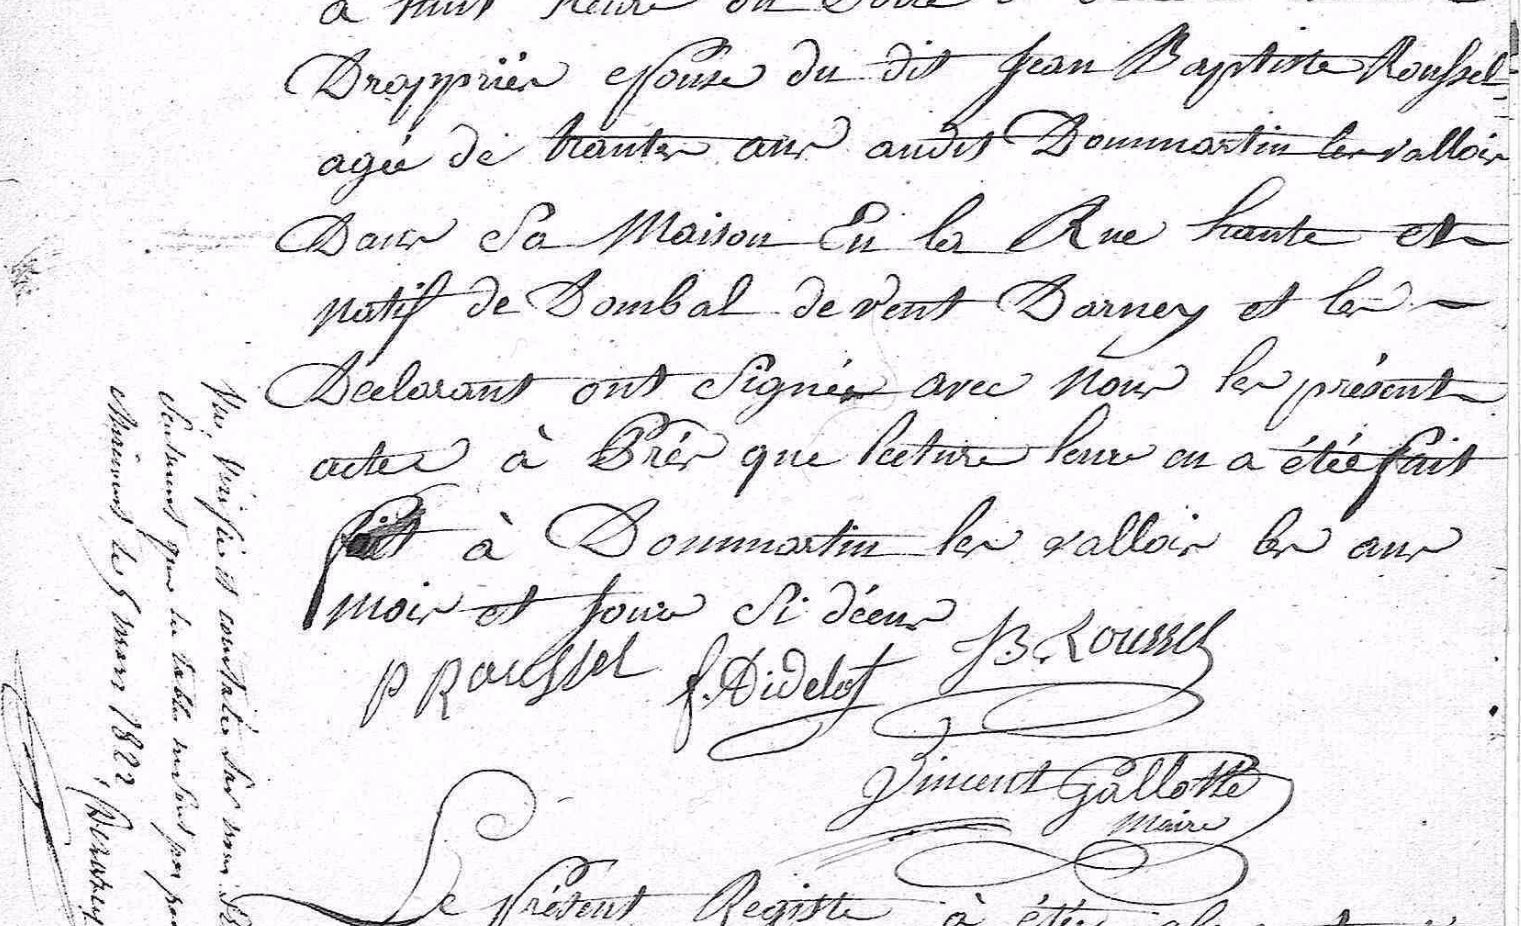 à huit heure du Soire
Drapprier epouse du dit Jean Baptiste Roussel
agée de trante ans audit Dommartin les valloir
Dans Sa Maison En la Rue haute et
natif de Dombal devent Darney et les
Déclarant ont Signée avec nous le présent
acte à Près que lecture leure en a étée fait
fait à Dommartin les valloir les ans
moir et Jour Si décus
P Roussel f. Didelot JB. Roussel
Vincent Gallotte
maire
Le Présent Registre à étée
Vu, Vérifié et constatée par nous
que la table
Mirecourt le 5 mars 1822